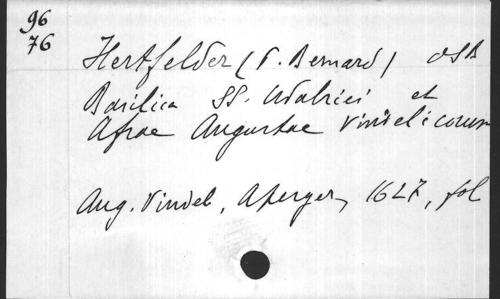 96
76
Hertfelder (P. Bernard) OSB
Basilica SS. Udalrici et
Afrae Augustae Vindelicorum
Aug. Vindel, Aperger, 1627, fol